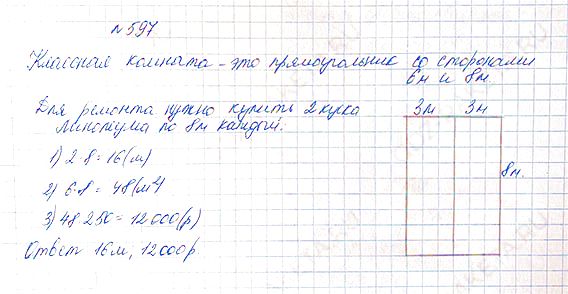 №597
Классная комната - это прямоугольник со сторонами
6м и 8м.
Для ремонта нужно купить 2 куска
линолеума по 8м каждый.
3м 3м
8м.
1) 2·8=16(м)
2) 6·8=48(м²)
3) 48·250=12000(р)
Ответ 16м, 12000р.